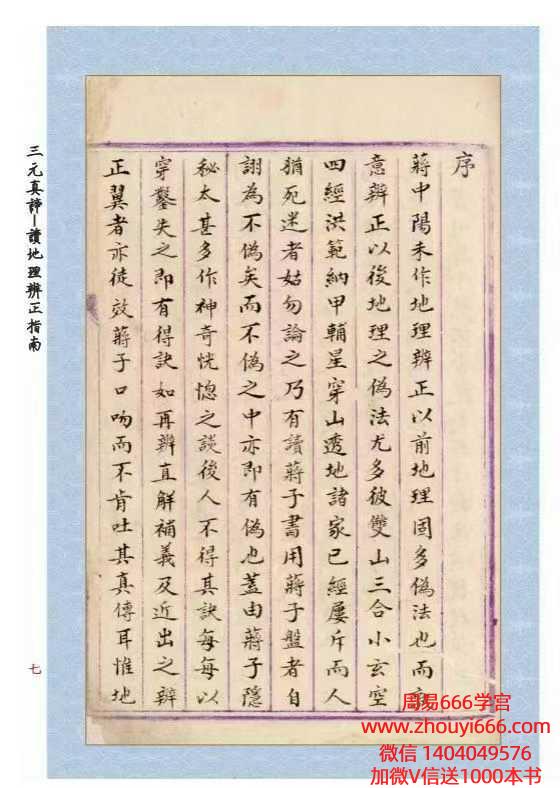 序
蔣中陽未作地理辨正以前地理固多偽法也而
意辨正以後地理之偽法尤多彼雙山三合小玄空
四經洪範納甲輔星穿山透地諸家已經屢斥而人
猶死迷者姑勿論之乃有讀蔣子書用蔣子盤者自
詡為不偽矣而不偽之中亦即有偽也蓋由蔣子隱
秘太甚多作神奇恍惚之談後人不得其訣每每以
穿鑿失之即有得訣如再辨直解補義及近出之辨
正翼者亦徒效蔣子口吻而不肯吐其真傳耳惟地
三元真諦—讀地理辨正指南
七
周易666学宫
www.zhouyi666.com
微信 1404049576
加微V信送1000本书